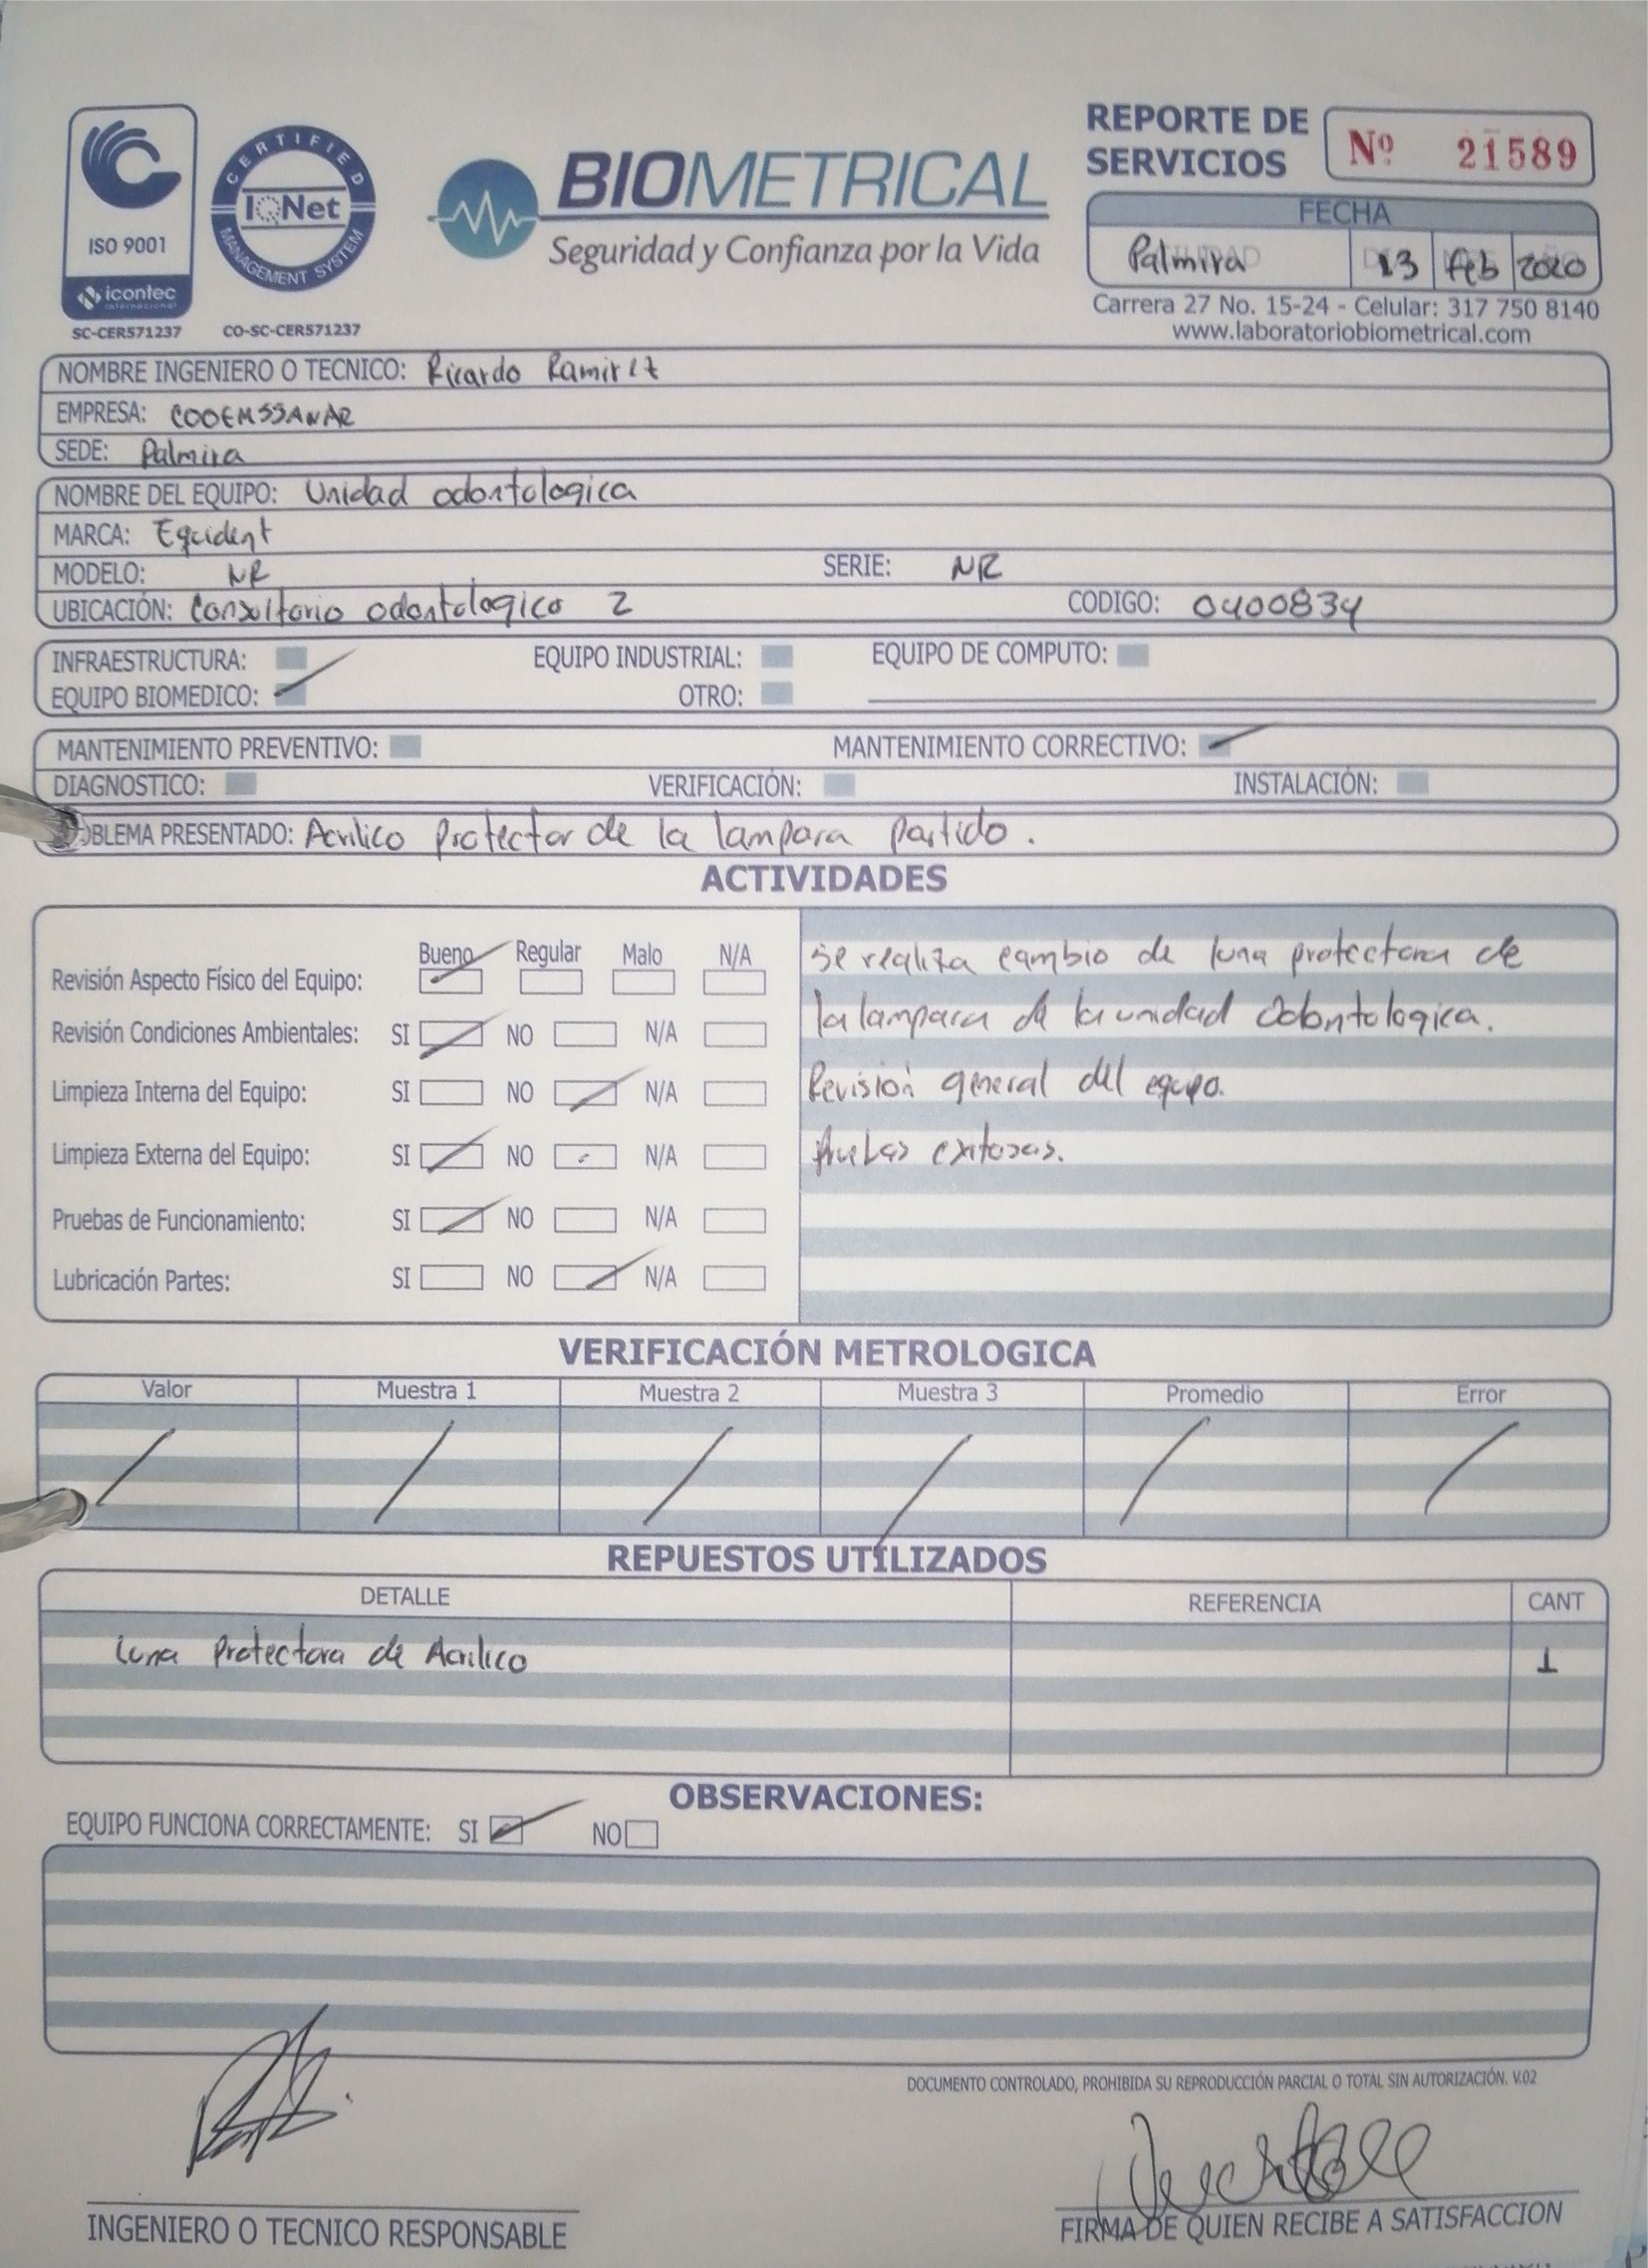 REPORTE DE SERVICIOS
Nº 21589
ISO 9001
icontec
internacional
SC-CER571237
CERTIFIED
IQNet
MANAGEMENT SYSTEM
CO-SC-CER571237
BIOMETRICAL
Seguridad y Confianza por la Vida
FECHA
Palmira 13 Feb 2020
Carrera 27 No. 15-24 - Celular: 317 750 8140
www.laboratoriobiometrical.com
NOMBRE INGENIERO O TECNICO: Ricardo Ramirez
EMPRESA: COOEMSSANAR
SEDE: Palmira
NOMBRE DEL EQUIPO: Unidad odontologica
MARCA: Equident
MODELO: NR SERIE: NR
UBICACIÓN: Consultorio odontologico 2 CODIGO: 0400834
INFRAESTRUCTURA: EQUIPO INDUSTRIAL: EQUIPO DE COMPUTO:
EQUIPO BIOMEDICO: OTRO:
MANTENIMIENTO PREVENTIVO: MANTENIMIENTO CORRECTIVO:
DIAGNOSTICO: VERIFICACIÓN: INSTALACIÓN:
OBLEMA PRESENTADO: Acrilico protector de la lampara partido.
ACTIVIDADES
Bueno Regular Malo N/A
Revisión Aspecto Físico del Equipo:
Revisión Condiciones Ambientales: SI NO N/A
Limpieza Interna del Equipo: SI NO N/A
Limpieza Externa del Equipo: SI NO N/A
Pruebas de Funcionamiento: SI NO N/A
Lubricación Partes: SI NO N/A
Se realiza cambio de luna protectora de
la lampara de la unidad Odontologica.
Revisión general del equipo.
Pruebas exitosas.
VERIFICACIÓN METROLOGICA
Valor Muestra 1 Muestra 2 Muestra 3 Promedio Error
REPUESTOS UTILIZADOS
DETALLE REFERENCIA CANT
Luna Protectora de Acrilico 1
OBSERVACIONES:
EQUIPO FUNCIONA CORRECTAMENTE: SI NO
DOCUMENTO CONTROLADO, PROHIBIDA SU REPRODUCCIÓN PARCIAL O TOTAL SIN AUTORIZACIÓN. V.02
INGENIERO O TECNICO RESPONSABLE
FIRMA DE QUIEN RECIBE A SATISFACCION